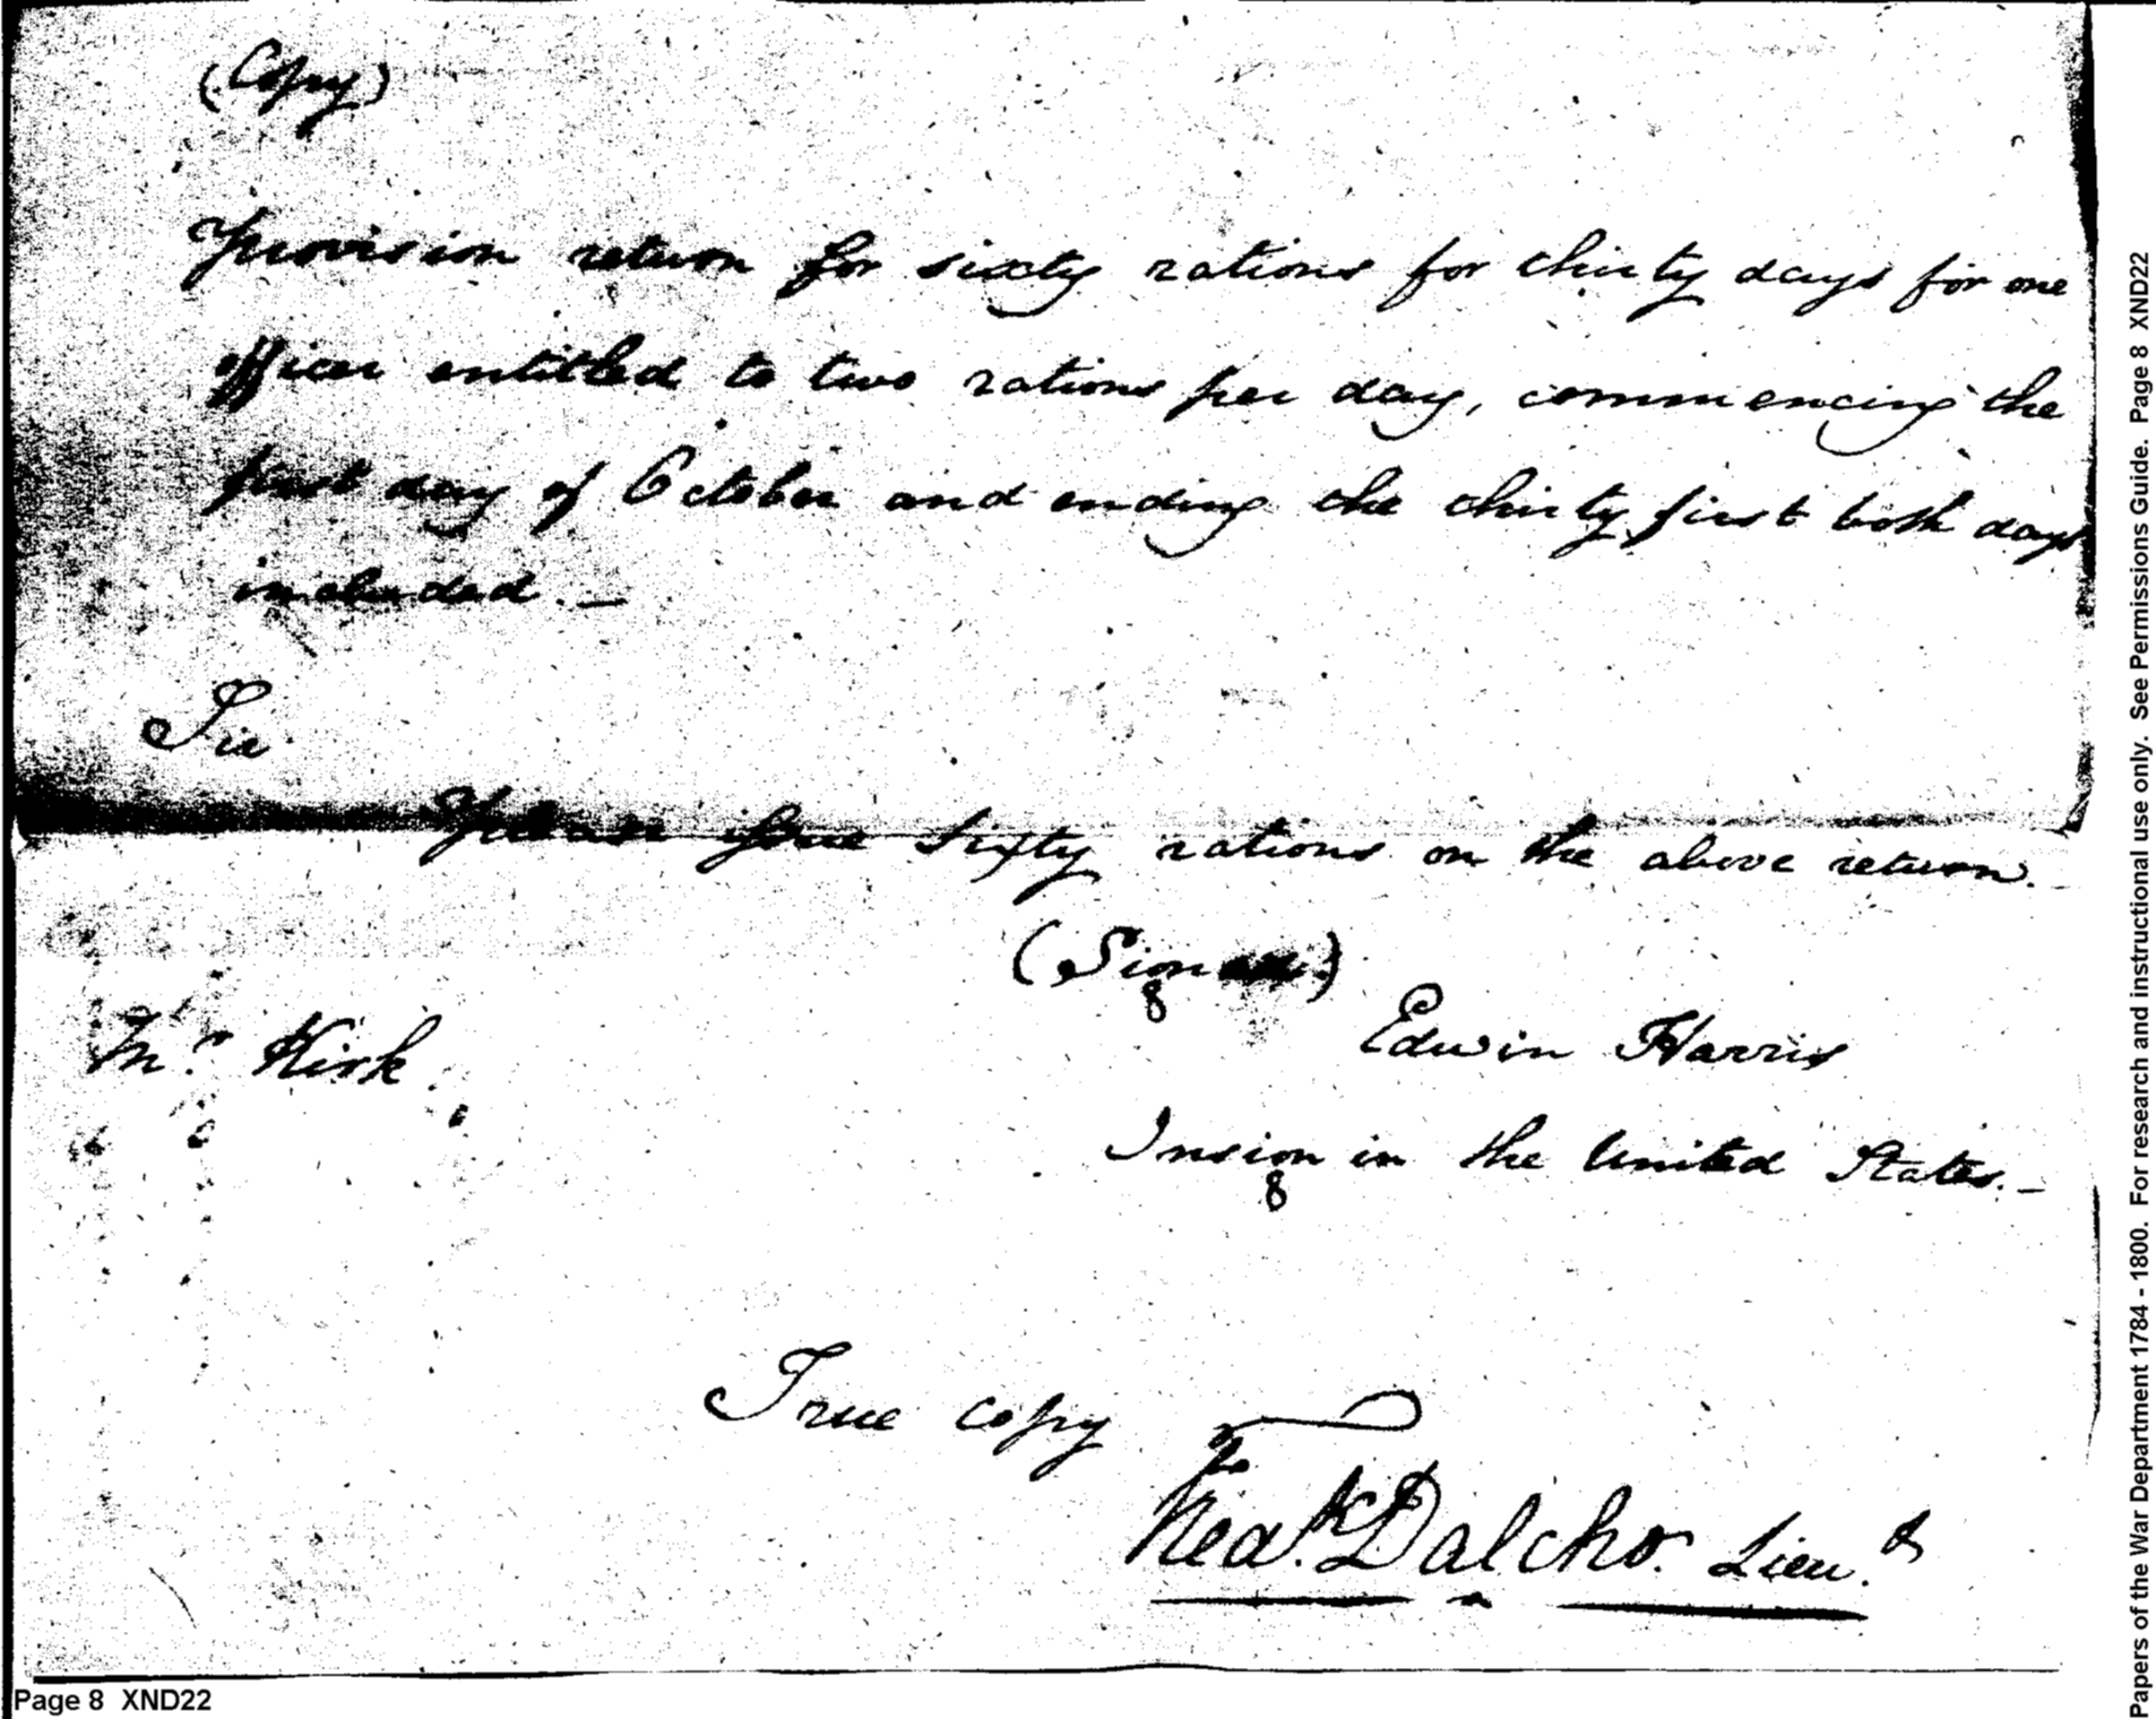 (Copy)
Provision return for sixty rations for thirty days for one
officer entitled to two rations per day, commencing the
first day of October and ending the thirty first both days
included. —
Sir
Please issue Sixty rations on the above return. -
(Signed)
Edwin Harris
Mr. Kirk
Insign in the United States. —
True copy
Fredk Dalcho. Lieu.t
Page 8 XND22
Papers of the War Department 1784 - 1800. For research and instructional use only. See Permissions Guide. Page 8 XND22